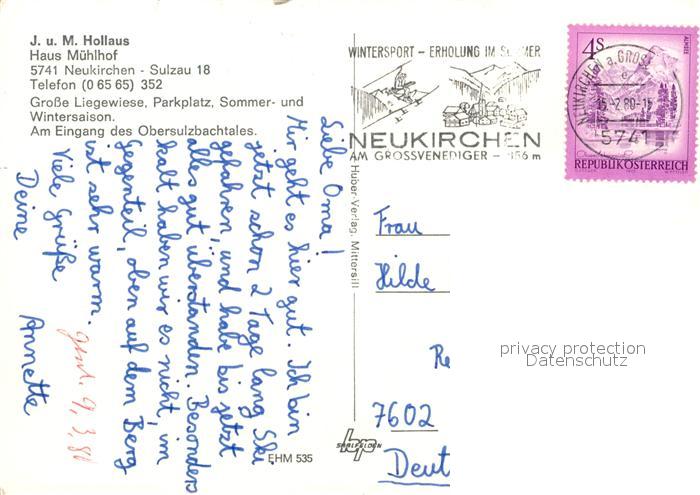 J. u. M. Hollaus
Haus Mühlhof
5741 Neukirchen - Sulzau 18
Telefon (0 65 65) 352
Große Liegewiese, Parkplatz, Sommer- und
Wintersaison.
Am Eingang des Obersulzbachtales.
WINTERSPORT - ERHOLUNG IM SOMMER
NEUKIRCHEN
AM GROSSVENEDIGER - 856 m
NEUKIRCHEN a. GROSSV.
15.-2.80-15
5741
4S
ALMSEE
REPUBLIK ÖSTERREICH
Liebe Oma!
Mir geht es hier gut. Ich bin
jetzt schon 2 Tage lang Ski
gefahren, und habe bis jetzt
alles gut überstanden. Besonders
kalt haben wir es nicht, im
Gegenteil, oben auf dem Berg
ist sehr warm.
Viele Grüße
Deine
Annette
9.3.80
Huber-Verlag, Mittersill
Frau
Hilde
Re
7602
Deut
privacy protection
Datenschutz
SAALFELDEN
EHM 535